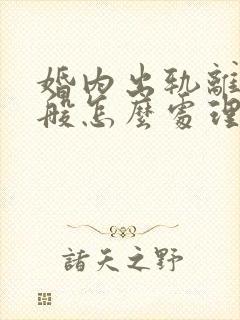 婚内出轨離
般怎麼處理
諸天之野